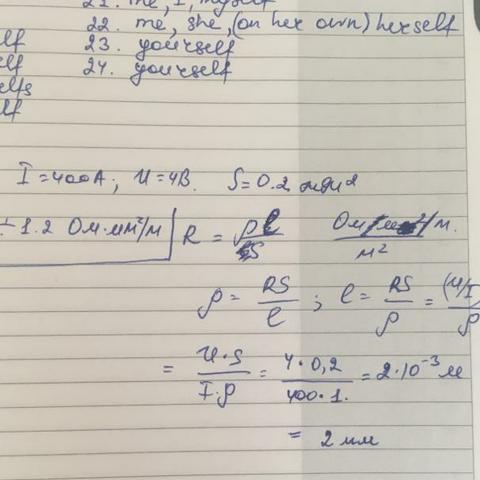 21. me, I, myself
22. me, she, (on her own) herself
23. yourself
24. yourself
I = 400A; U = 4В. S = 0.2 мм²
÷ 1.2 Ом·мм²/м
R = ρℓ/S
м²
ρ = RS/ℓ; ℓ = RS/ρ = (U/I)/ρ
= U·S/I·ρ = 4·0,2/400·1. = 2·10⁻³ м
= 2 мм